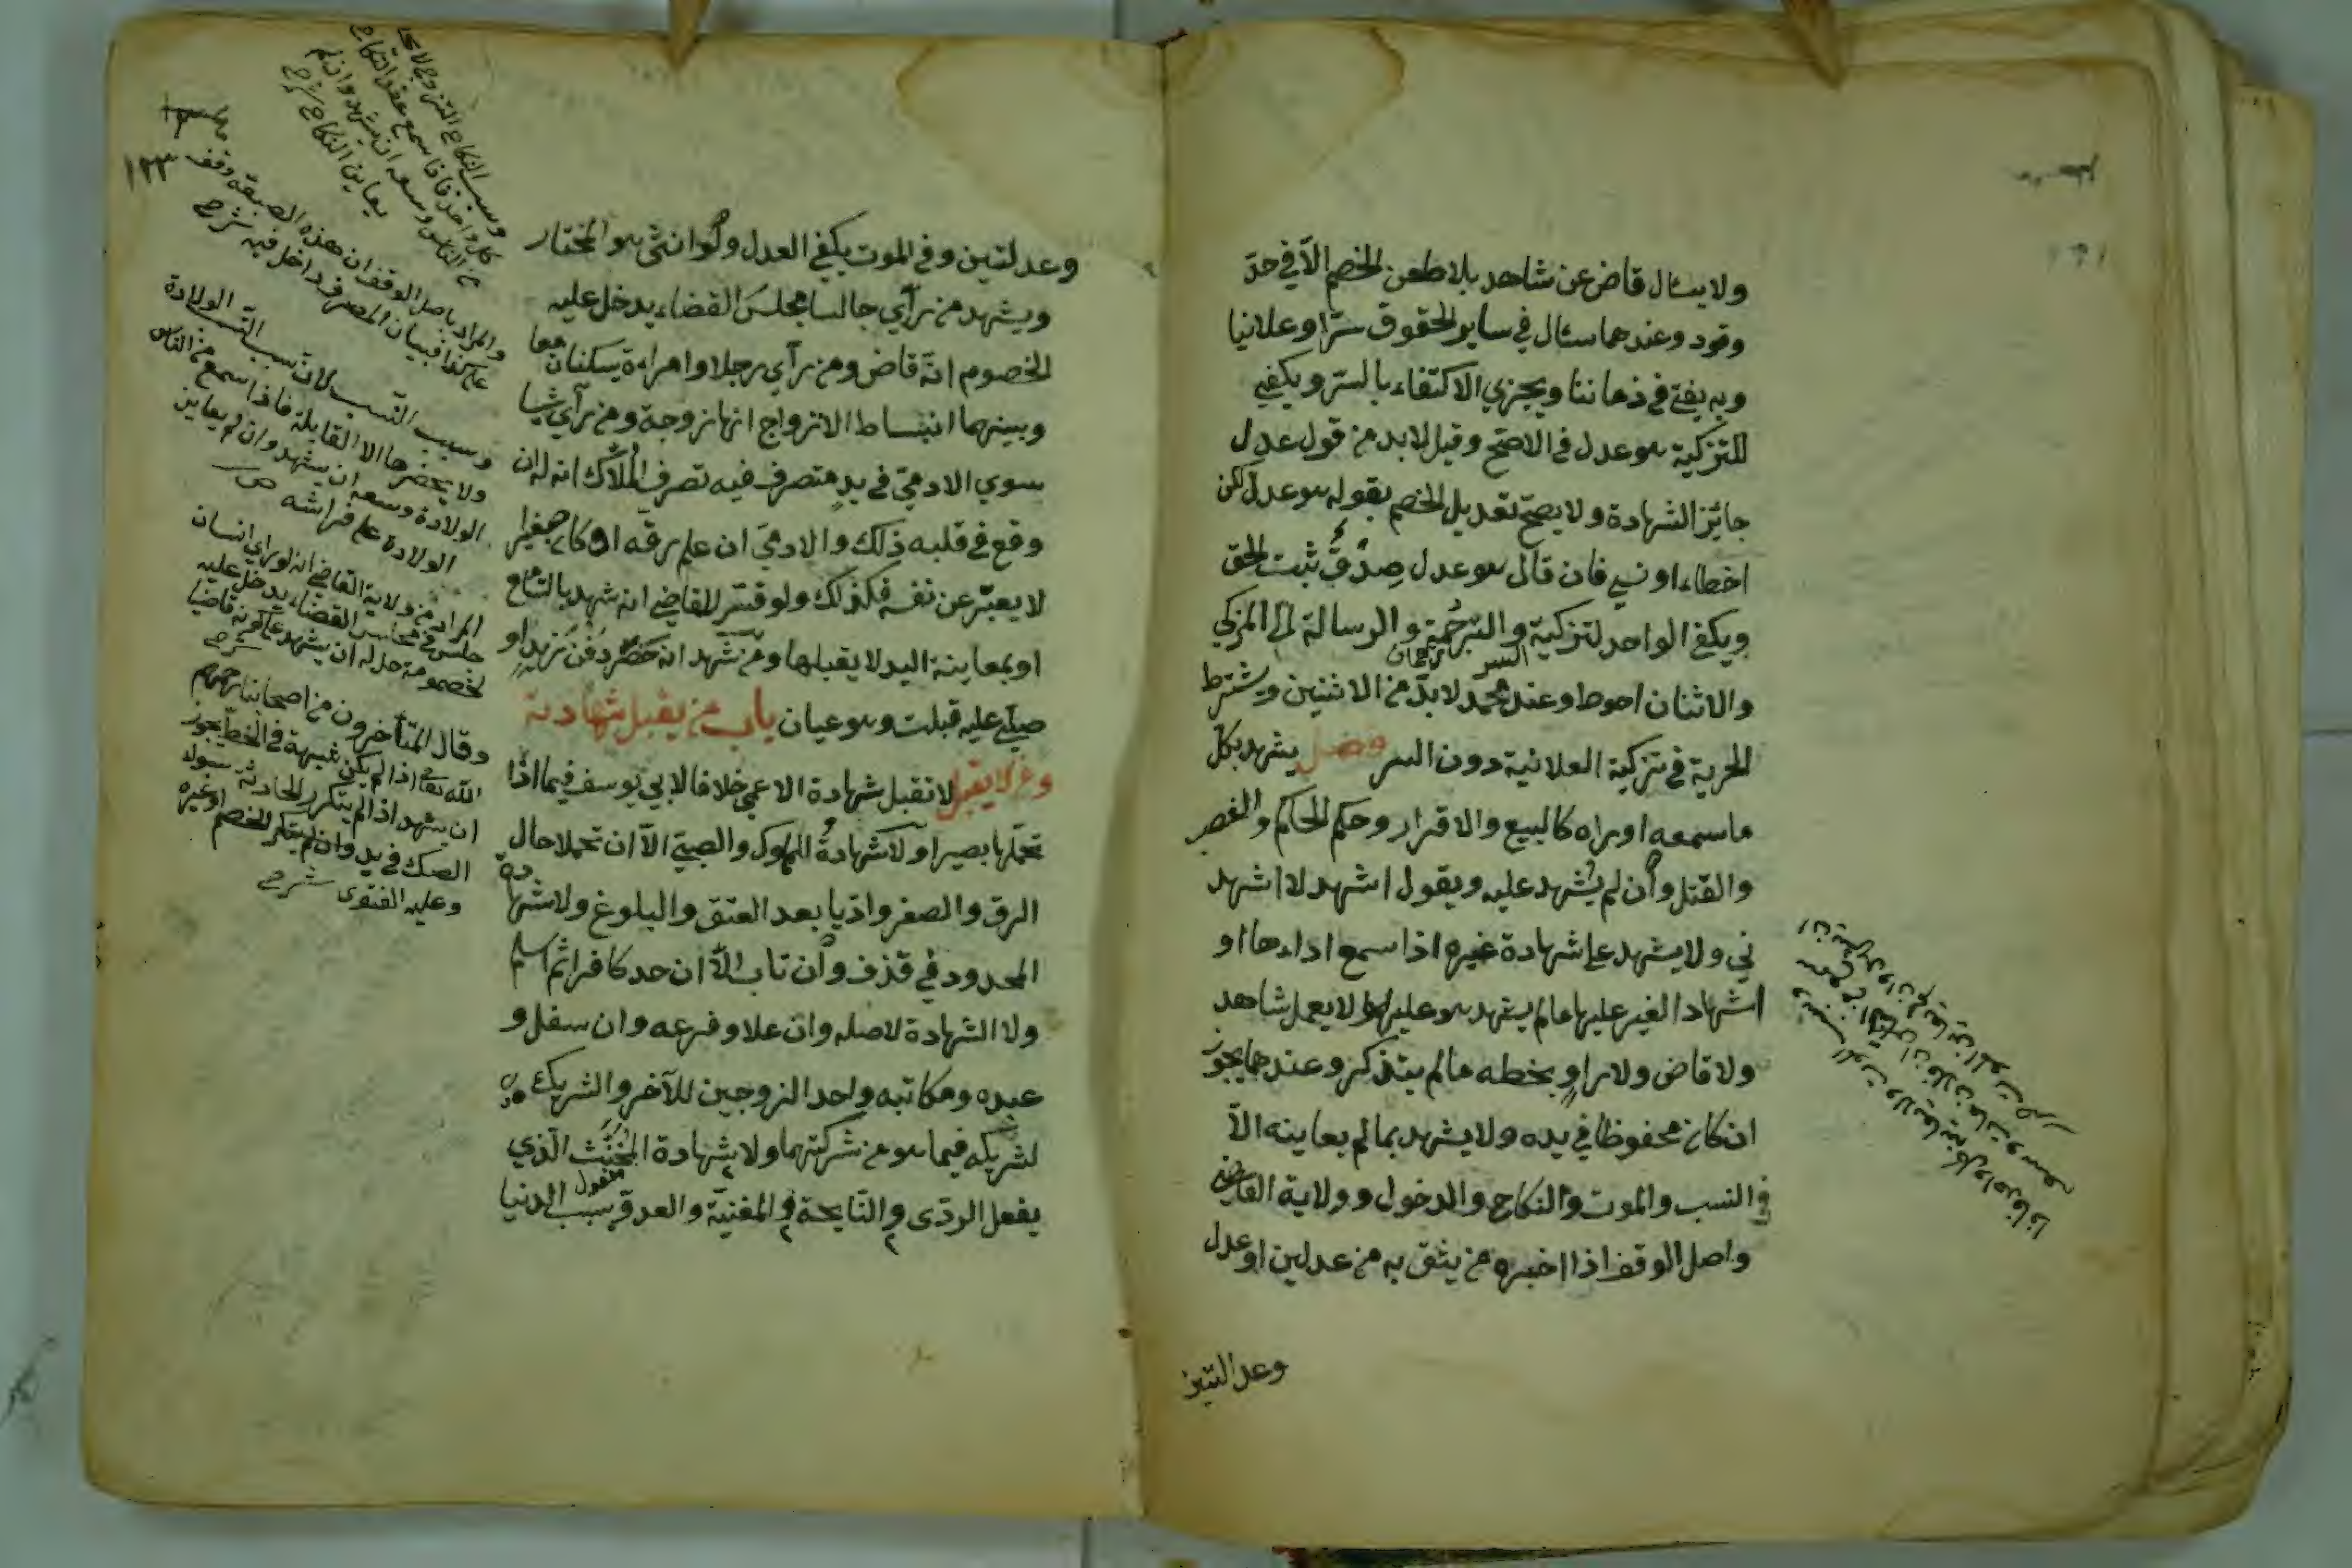 ولا يسئال قاض عن شاهد بلا طعن الخصم الّا في حدّ
وقود وعندهما سئال في ساير الحقوق سرّا وعلانيا
وبه يفتي في زماننا ويجزي الاكتفاء بالسر ويكفي
للتزكية هو عدل في الاصح وقيل لا بد من قول عدل
جائز الشهادة ولا يصحّ تعديل الخصم بقوله هو عدل لكن
اخطاء او نسي فان قال هو عدل صدق ثبت الحق
ويكفي الواحد لتزكية السر والترجمة والرسالة الى المزكي
ترجمان
والاثنان احوط وعند محمد لا بدّ من الاثنين ويشترط
الحرية في تزكية العلانية دون السر فصل يشهد بكل
ما سمعه او براه كالبيع والاقرار وحكم الحاكم والغصب
والقتل وان لم يشهد عليه ويقول اشهد لا اشهد
ني ولا يشهد على شهادة غيره اذا سمع اداءها او
اشهاد الغير عليها مالم يشهد هو عليها ولا يعمل شاهد
ولا قاض ولا راوٍ بخطه مالم يتذكر وعندهما يجوز
ان كان محفوظا في يده ولا يشهد بمالم يعاينه الّا
في النسب والموت والنكاح والدخول وولاية القاضي
واصل الوقف اذا اخبره من يثق به من عدلين او عدل
وعدلتين
وعدلتين وفي الموت يكفي العدل ولو انثى هو المختار
ويشهد من رآي جالسا مجلس القضاء يدخل عليه
الخصوم انّه قاض ومن رآي رجلا وامراءة يسكنان معا
وبينهما انبساط الازواج انها زوجة ومن رآي شيا
سوي الادمي في يد متصرف فيه تصرف الملّاك انه له ان
وقع في قلبه ذلك والادمي ان علم رقه او كان صغيرا
لا يعبّر عن نفسه فكذلك ولو فسّر للقاضي انه شهد بالتسامع
او بمعاينة اليد لا يقبلها ومن شهد انه حضر دفن زيد او
صلّى عليه قبلت وهو عيان باب من يقبل شهادته
ومن لا يقبل لا تقبل شهادة الاعمى خلافا لابي يوسف فيما اذا
تحمّلها بصيرا ولا شهادة المملوك والصبي الّا ان تحملا حال
الرق والصغر وادّيا بعد العتق والبلوغ ولا شهادة
المحدود في قذف وان تاب الّا ان حد كافرا ثم اسلم
ولا الشهادة لاصله وان علا وفرعه وان سفل و
عبده ومكاتبه واحد الزوجين للآخر والشريك
لشريكه فيما هو من شركتهما ولا شهادة المخنّث الّذي
يفعل الردّى والنّايحة والمغنيّة والعدوّ بسبب الدنيا
١٢٣
والمراد باصل الوقف ان هذه الصيغة وقف
على كذا فبيان المصرف داخل فيه شرح
وسبب النسب لانّ سبب النّسب الولادة
ولا يحضرها الا القابلة فاذا سمع من الناس
الولادة وسعه ان يشهد وان لم يعاين
الولادة على فراشه
المراد من ولاية القاضي انه لو راي انسان
جلس في مجلس القضاء يدخل عليه
لخصومة حل له ان يشهد على كونه قاضيا
شرح
وقال المتأخرون من اصحابنا رحمهم
الله تعالى اذا لم يكن شبهة في الخط يجوز
ان يشهد اذا لم يتكرر الحادثة سواء
الصك في يده وان لم ينكر الخصم او غيره
وعليه الفتوى شرح